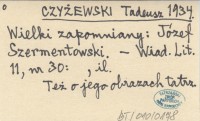 CZYŻEWSKI Tadeusz 1934.
Wielki zapomniany: Józef
Szermentowski. – Wiad. Lit.
11, nr 30: , il.
Też o jego obrazach tatrz.